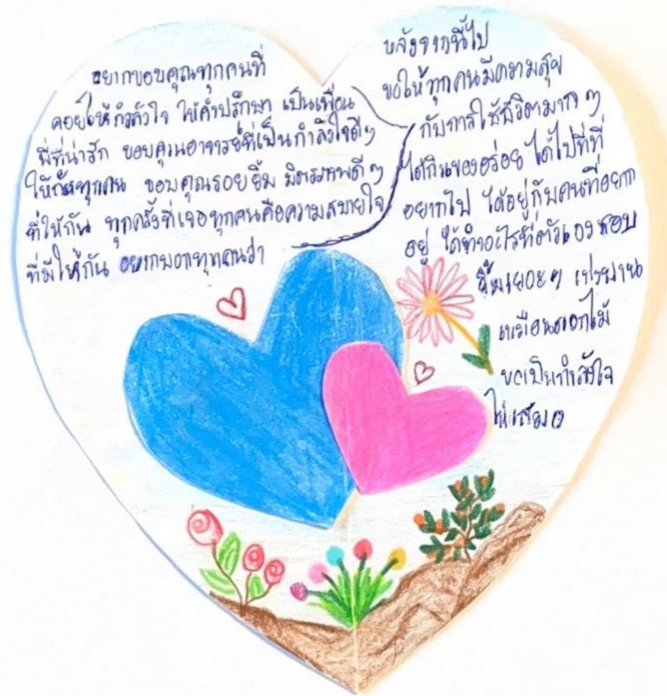 อยากขอบคุณทุกคนที่
คอยให้กำลังใจ ให้คำปรึกษา เป็นเพื่อน
พี่ที่น่ารัก ขอบคุณอาจารย์ที่เป็นกำลังใจดีๆ
ให้กับทุกคน ขอบคุณรอยยิ้ม มิตรภาพดีๆ
ที่ให้กัน ทุกครั้งที่เจอทุกคนคือความสบายใจ
ที่มีให้กัน อยากบอกทุกคนว่า
หลังจากนี้ไป
ขอให้ทุกคนมีความสุข
กับการใช้ชีวิตมากๆ
ได้กินของอร่อย ได้ไปที่ที่
อยากไป ได้อยู่กับคนที่อยาก
อยู่ ได้ทำอะไรที่ตัวเองชอบ
ยิ้มเยอะๆ เบ่งบาน
เหมือนดอกไม้
ขอเป็นกำลังใจ
ให้เสมอ